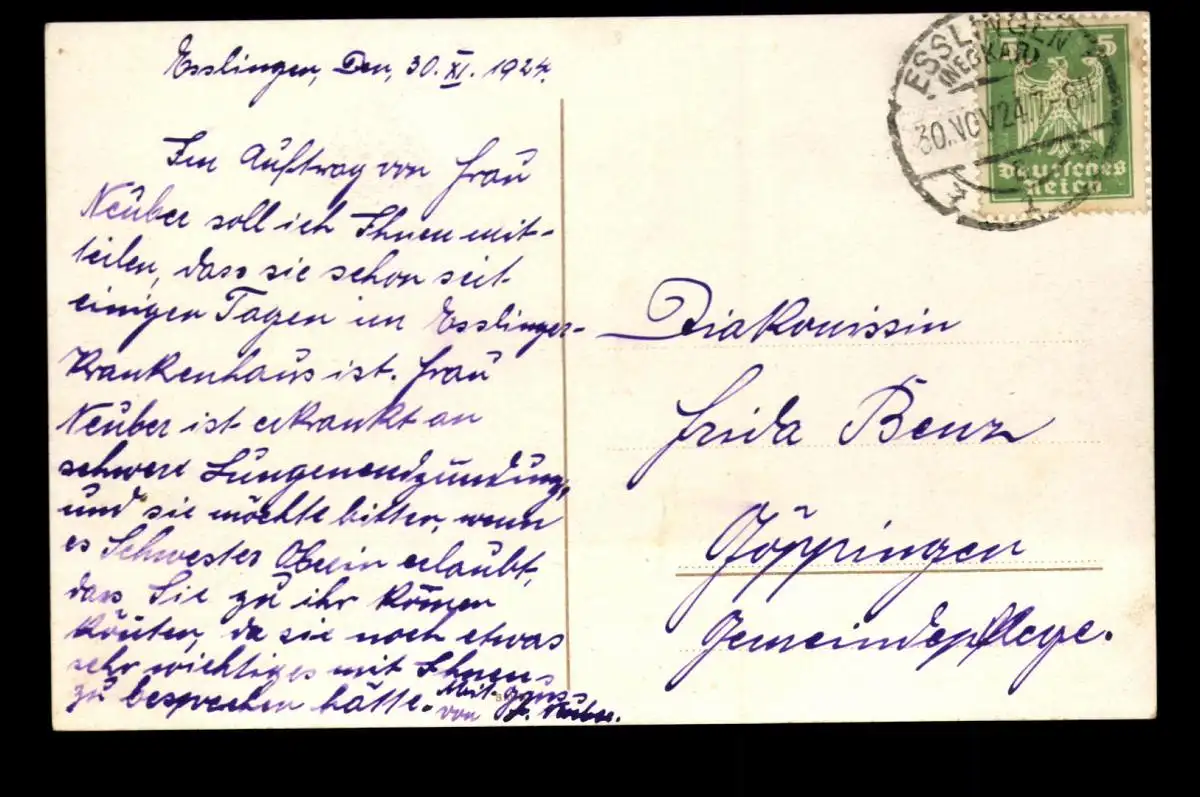 Esslingen, Den, 30. XI. 1924.
Im Auftrag von Frau
Neuber soll ich Ihnen mit-
teilen, dass sie schon seit
einigen Tagen im Esslinger-
Krankenhaus ist. Frau
Neuber ist erkrankt an
schwere Lungenendzündung,
und sie möchte bitten, wenn
es Schwester Oberin erlaubt,
dass Sie zu ihr kömen
könten, da sie noch etwas
sehr wichtiges mit Ihnen
zu besprechen hätte. Mit Gruss
von F. Neuber.
ESSLINGEN
(NECKAR)
30.NOV.24.7-8N
5 5
Deutsches
Reich
Diakonissin
Frida Benz
Göppingen
Gemeindepflege.